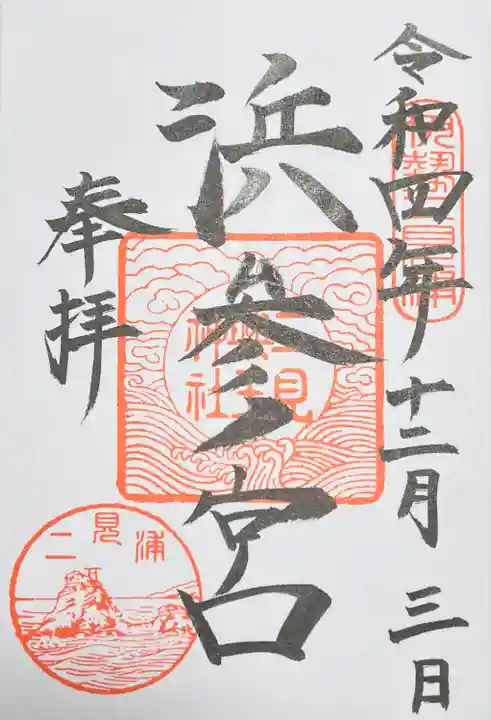 令和四年十二月三日
伊勢二見浦
浜参宮
二見興玉神社
奉拝
二見浦